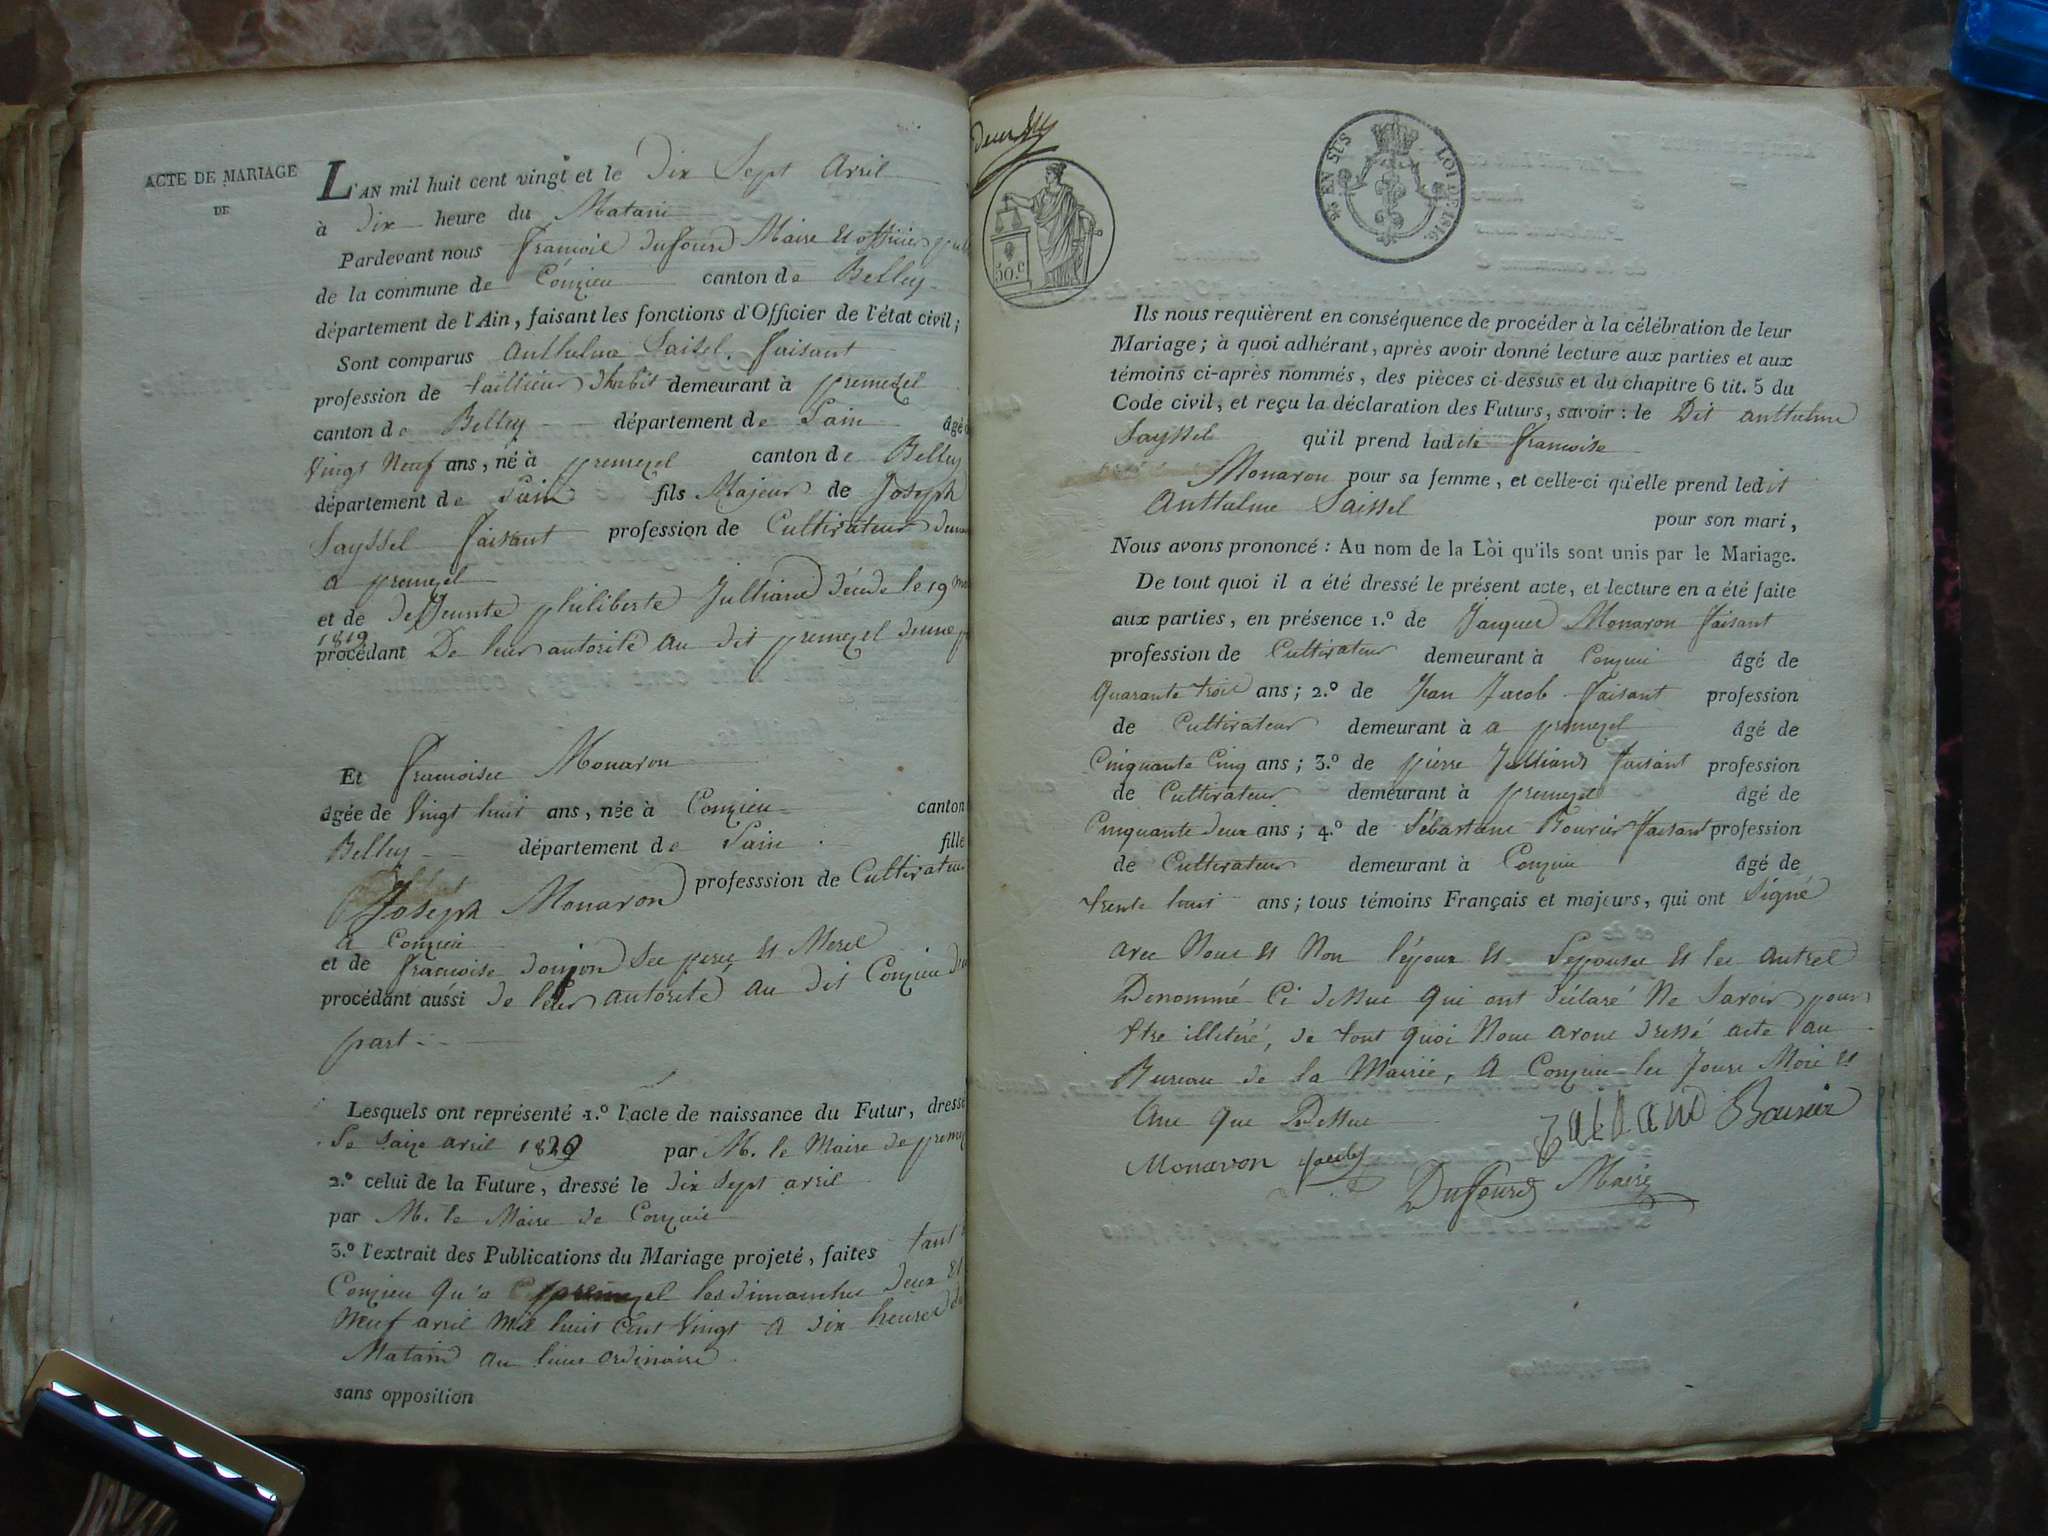 ACTE DE MARIAGE
DE
L'AN mil huit cent vingt et le dix Sept avril
à dix heure du Matain
Pardevant nous francoit dufourd Maire et officier
de la commune de Conzieu canton de Belley
département de l'Ain, faisant les fonctions d'Officier de l'état civil;
Sont comparus anthelme Saisel faisant
profession de taillieur d'habit demeurant à premezel
canton de Belley département de Lain âgé
vingt Neuf ans, né à premezel canton de Belley
département de Lain fils Majeur de Joseph
Sayssel faisant profession de Cultivateur
a premezel
et de deffeunte philiberte Julliand décede le 19
1819
procédant De leur autorité au dit premezel d'une
Et francoise Monavon
âgée de Vingt huit ans, née à Conzieu canton
Belley département de Lain fille
Joseph Monavon professsion de Cultivateur
a Conzieu
et de francoise donjon see pere et Mere
procédant aussi de leur autorité au dit Conzieu
part
Lesquels ont représenté 1.º l'acte de naissance du Futur, dressé
Le saize avril 1820 par M. le Maire de
2.º celui de la Future, dressé le dix Sept avril
par M. le Maire de Conzieu
3.º l'extrait des Publications du Mariage projeté, faites tant
Conzieu qu'a premezel les dimanches deux et
Neuf avril Mil huit Cent Vingt a dix heures
Matain au lieux ordinaire
sans opposition
50 c
25 EN SUS LOI DE 1816.
Ils nous requièrent en conséquence de procéder à la célébration de leur
Mariage; à quoi adhérant, après avoir donné lecture aux parties et aux
témoins ci-après nommés, des pièces ci-dessus et du chapitre 6 tit. 5 du
Code civil, et reçu la déclaration des Futurs, savoir: le Dit anthelme
Sayssel qu'il prend ladite francoise
Monavon pour sa femme, et celle-ci qu'elle prend ledit
Anthelme Saissel
pour son mari,
Nous avons prononcé: Au nom de la Lòi qu'ils sont unis par le Mariage.
De tout quoi il a été dressé le présent acte, et lecture en a été faite
aux parties, en présence 1.º de Jacques Monavon faisant
profession de Cultivateur demeurant à Conzieu âgé de
Quarante trois ans; 2.º de Jean Jacob faisant profession
de Cultivateur demeurant à a premezel âgé de
Cinquante Cinq ans; 3.º de pierre Julliand faisant profession
de Cultivateur demeurant à premezel âgé de
Cinquante deux ans; 4.º de Sébastien Bouvier faisant profession
de Cultivateur demeurant à Conzieu âgé de
trente huit ans; tous témoins Français et majeurs, qui ont Signé
avec Nous et Non l'époux et Sepouse et les autres
Denommé Ci dessus qui ont déclaré Ne Savoir pour
être illetéré, de tout quoi Nous avons dressé acte au
Bureau de la Mairie, A Conzieu les Jours Mois et
An que Dessus
Julliand Bouvier
Monavon Jacob
Dufourd Maire